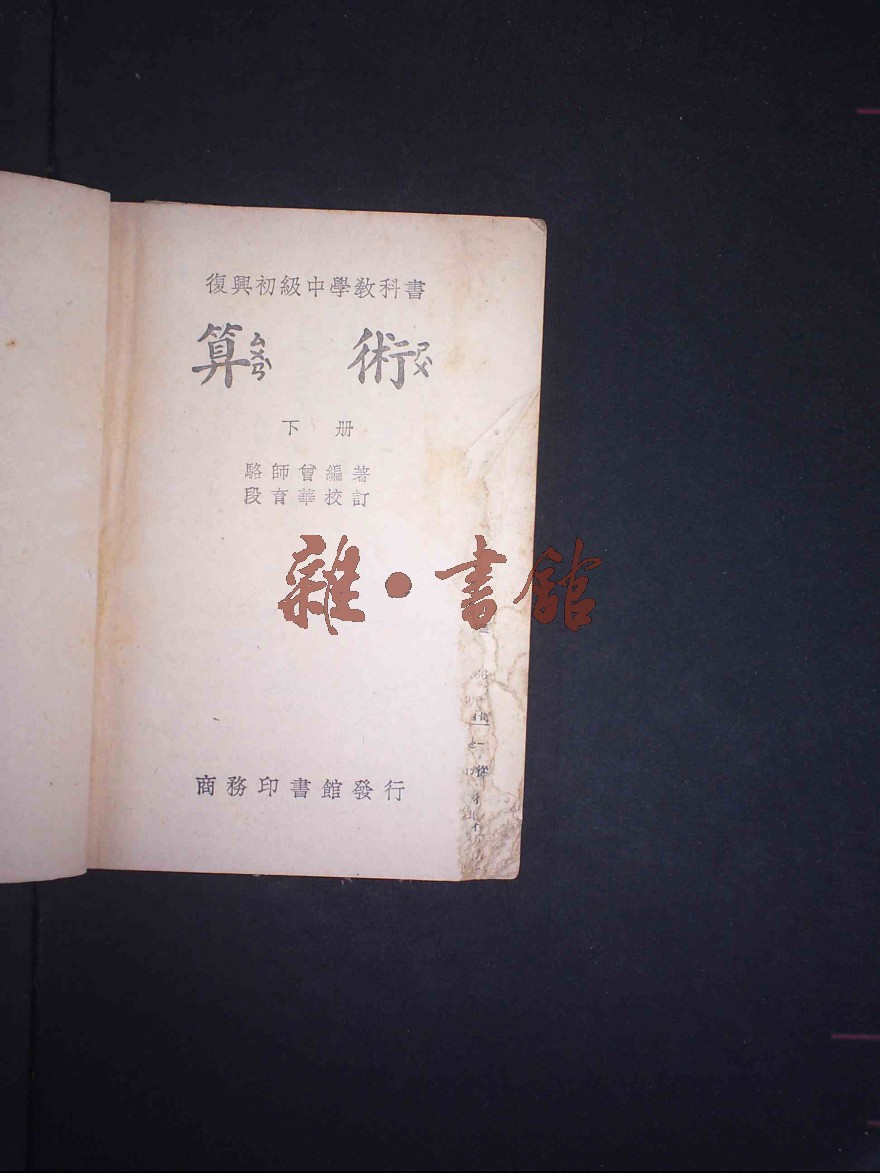 復興初級中學教科書
算ㄙㄨㄢˋ 術ㄕㄨˋ
下 册
駱師曾編著
段育華校訂
雜·書館
商務印書館發行